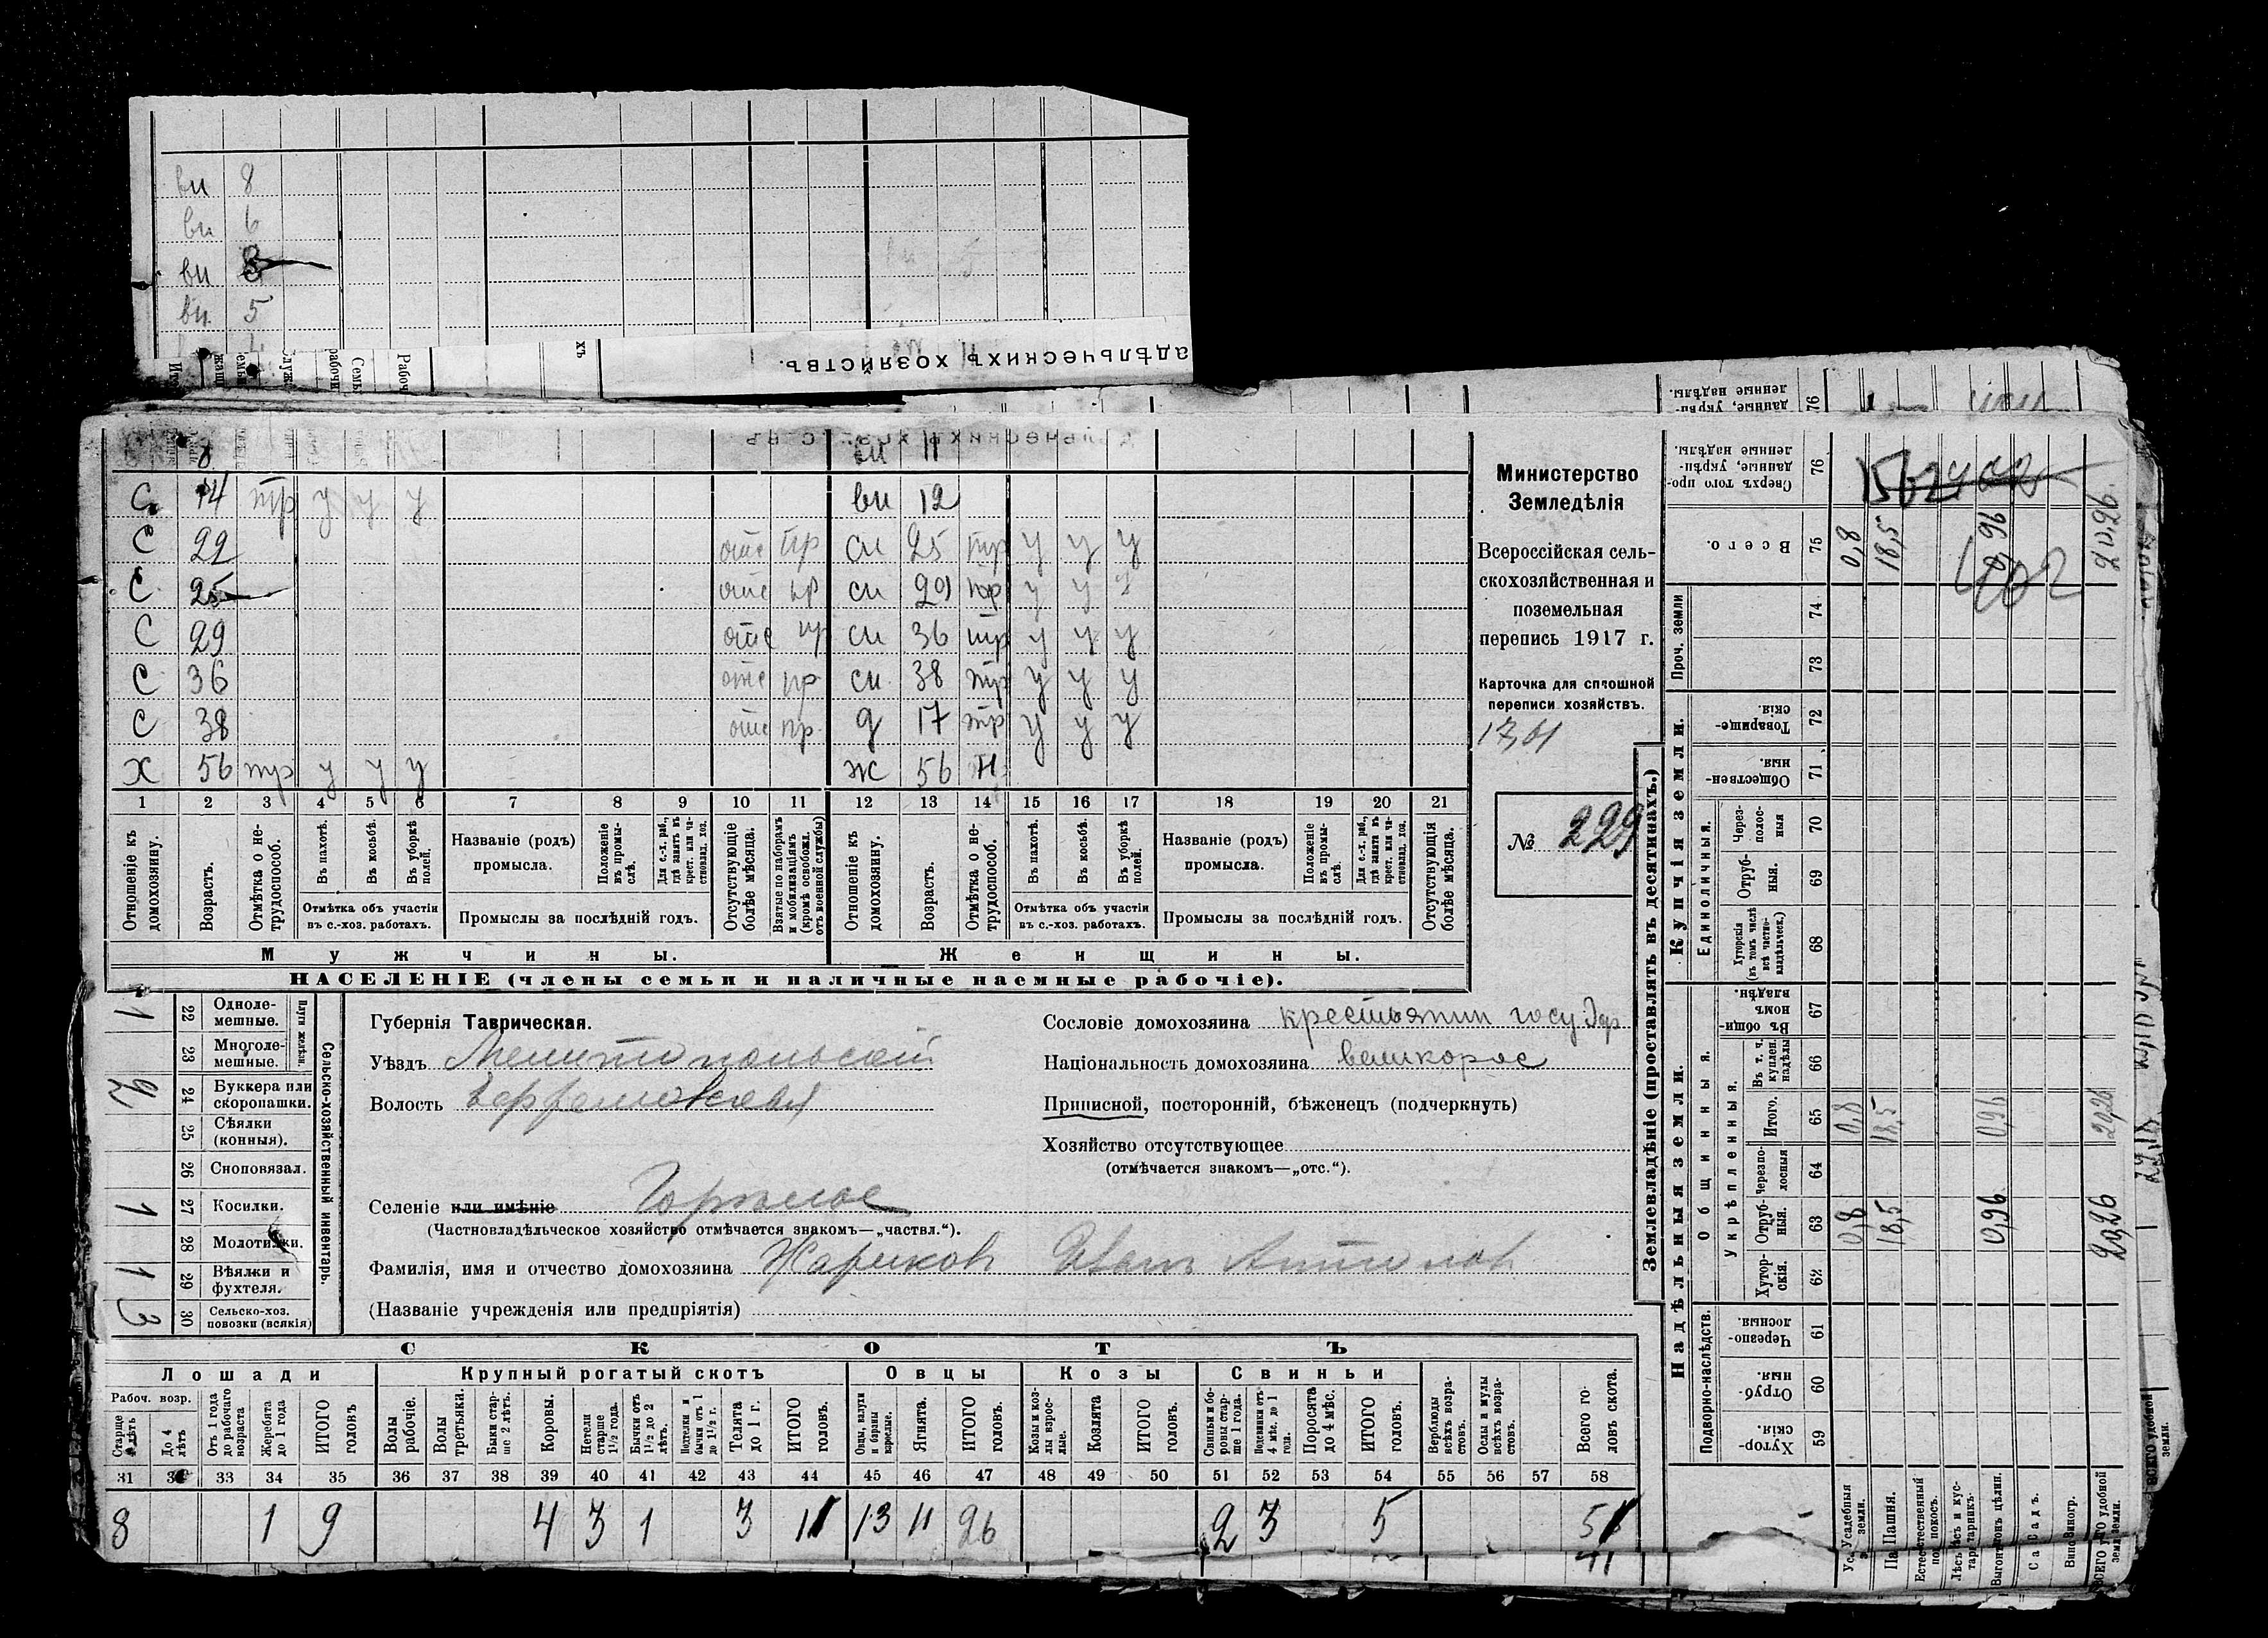 ви 8
ви 6
ви 8
ви 5
адѣльческихъ хозяйствъ.
ви 11
С 14 тр у у у ви 12
С 22 отс пр сн 25 тр у у у
С 25 отс пр сн 29 тр у у у
С 29 отс пр сн 36 тр у у у
С 36 отс пр сн 38 тр у у у
С 38 отс пр д 17 тр у у у
Х 56 тр у у у ж 56 н
1 2 3 4 5 6 7 8 9 10 11 12 13 14 15 16 17 18 19 20 21
Отношеніе къ домохозяину.
Возрастъ.
Отмѣтка о нетрудоспособ.
Въ пахотѣ.
Въ косьбѣ.
Въ уборкѣ полей.
Отмѣтка объ участіи въ с.-хоз. работахъ.
Названіе (родъ) промысла.
Положеніе въ промыслѣ.
Для с.-х. раб., гдѣ занятъ въ крест. или частновлад. хоз.
Промыслы за послѣдній годъ.
Отсутствующіе болѣе мѣсяца.
Взятые по наборамъ и мобилизаціямъ (кромѣ освобожд. отъ военной службы)
Отношеніе къ домохозяину.
Возрастъ.
Отмѣтка о нетрудоспособ.
Въ пахотѣ.
Въ косьбѣ.
Въ уборкѣ полей.
Отмѣтка объ участіи въ с.-хоз. работахъ.
Названіе (родъ) промысла.
Положеніе въ промыслѣ.
Для с.-х. раб., гдѣ занятъ въ крест. или частновлад. хоз.
Промыслы за послѣдній годъ.
Отсутствующіе болѣе мѣсяца.
Мужчины. Женщины.
НАСЕЛЕНІЕ (члены семьи и наличные наемные рабочіе).
Министерство
Земледѣлія
Всероссійская сель-
скохозяйственная и
поземельная
перепись 1917 г.
Карточка для сплошной
переписи хозяйствъ.
№ 229
1 22 Одноле-мешные.
23 Многоле-мешные.
Плуги желѣзн.
2 24 Буккера или скоропашки.
25 Сѣялки (конныя).
26 Сноповязал.
1 27 Косилки.
28 Молотилки.
1 29 Вѣялки и фухтеля.
3 30 Сельско-хоз. повозки (всякія)
Сельско-хозяйственный инвентарь.
Губернія Таврическая.
Уѣздъ Мелитопольскій
Волость
Селеніе или имѣніе Горѣлое
(Частновладѣльческое хозяйство отмѣчается знакомъ—„частвл.“).
Фамилія, имя и отчество домохозяина Жариковъ Иванъ
(Названіе учрежденія или предпріятія)
Сословіе домохозяина крестьянин государ
Національность домохозяина великорос
Приписной, посторонній, бѣженецъ (подчеркнуть)
Хозяйство отсутствующее
(отмѣчается знакомъ—„отс.“).
СКОТЪ
Лошади Крупный рогатый скотъ Овцы Козы Свиньи
Рабоч. возр.
Старше 4 лѣтъ
До 4 лѣтъ
Отъ 1 года до рабочаго возраста
Жеребята до 1 года
ИТОГО головъ
Волы рабочіе.
Волы третьяки.
Быки старше 2 лѣтъ.
Коровы.
Нетели старше 1½ года.
Бычки отъ 1½ до 2 лѣтъ.
Нетелки и бычки отъ 1 до 1½ г.
Телята до 1 г.
ИТОГО головъ.
Овцы, валухи и бараны взрослые.
Ягнята.
ИТОГО головъ.
Козы и козлы взрослые.
Козлята
ИТОГО головъ.
Свиньи и боровы старше 1 года.
Подсвинки отъ 4 мѣс. до 1 года.
Поросята до 4 мѣс.
ИТОГО головъ.
Верблюды всѣхъ возрастовъ.
Ослы и мулы всѣхъ возрастовъ.
Всего головъ скота.
31 32 33 34 35 36 37 38 39 40 41 42 43 44 45 46 47 48 49 50 51 52 53 54 55 56 57 58
8 1 9 4 3 1 3 11 13 11 26 2 3 5 51
Землевладѣніе (проставлять въ десятинахъ.)
Надѣльныя земли. Купчія земли.
Подворно-наслѣдств. Общинныя. Укрѣпленныя. Единоличныя. Проч. земли
Хуторскія 59
Отрубныя. 60
Черезполосныя 61
Хуторскія. 62
Отрубныя. 63
Черезполосныя 64
Итого. 65
Въ т. ч. куплен. надѣлы 66
Въ общинномъ владѣн. 67
Хуторскія (въ томъ числѣ всѣ частновладѣльческ.) 68
Отрубныя. 69
Черезполосныя 70
Общественныя. 71
Товарищескія. 72
73
74
Всего. 75
Сверхъ того проданные, укрѣпленные надѣлы. 76
Усадебныя земли. 0,8 0,8 0,8
Пашня. 18,5 18,5 18,5
Естественный покосъ.
Лѣсъ и кустарникъ.
Выгонъ цѣлин. 0,96 0,96 0,96
Садъ.
Виногр.
ВСЕГО удобной земли. 20,26 20,26 20,26